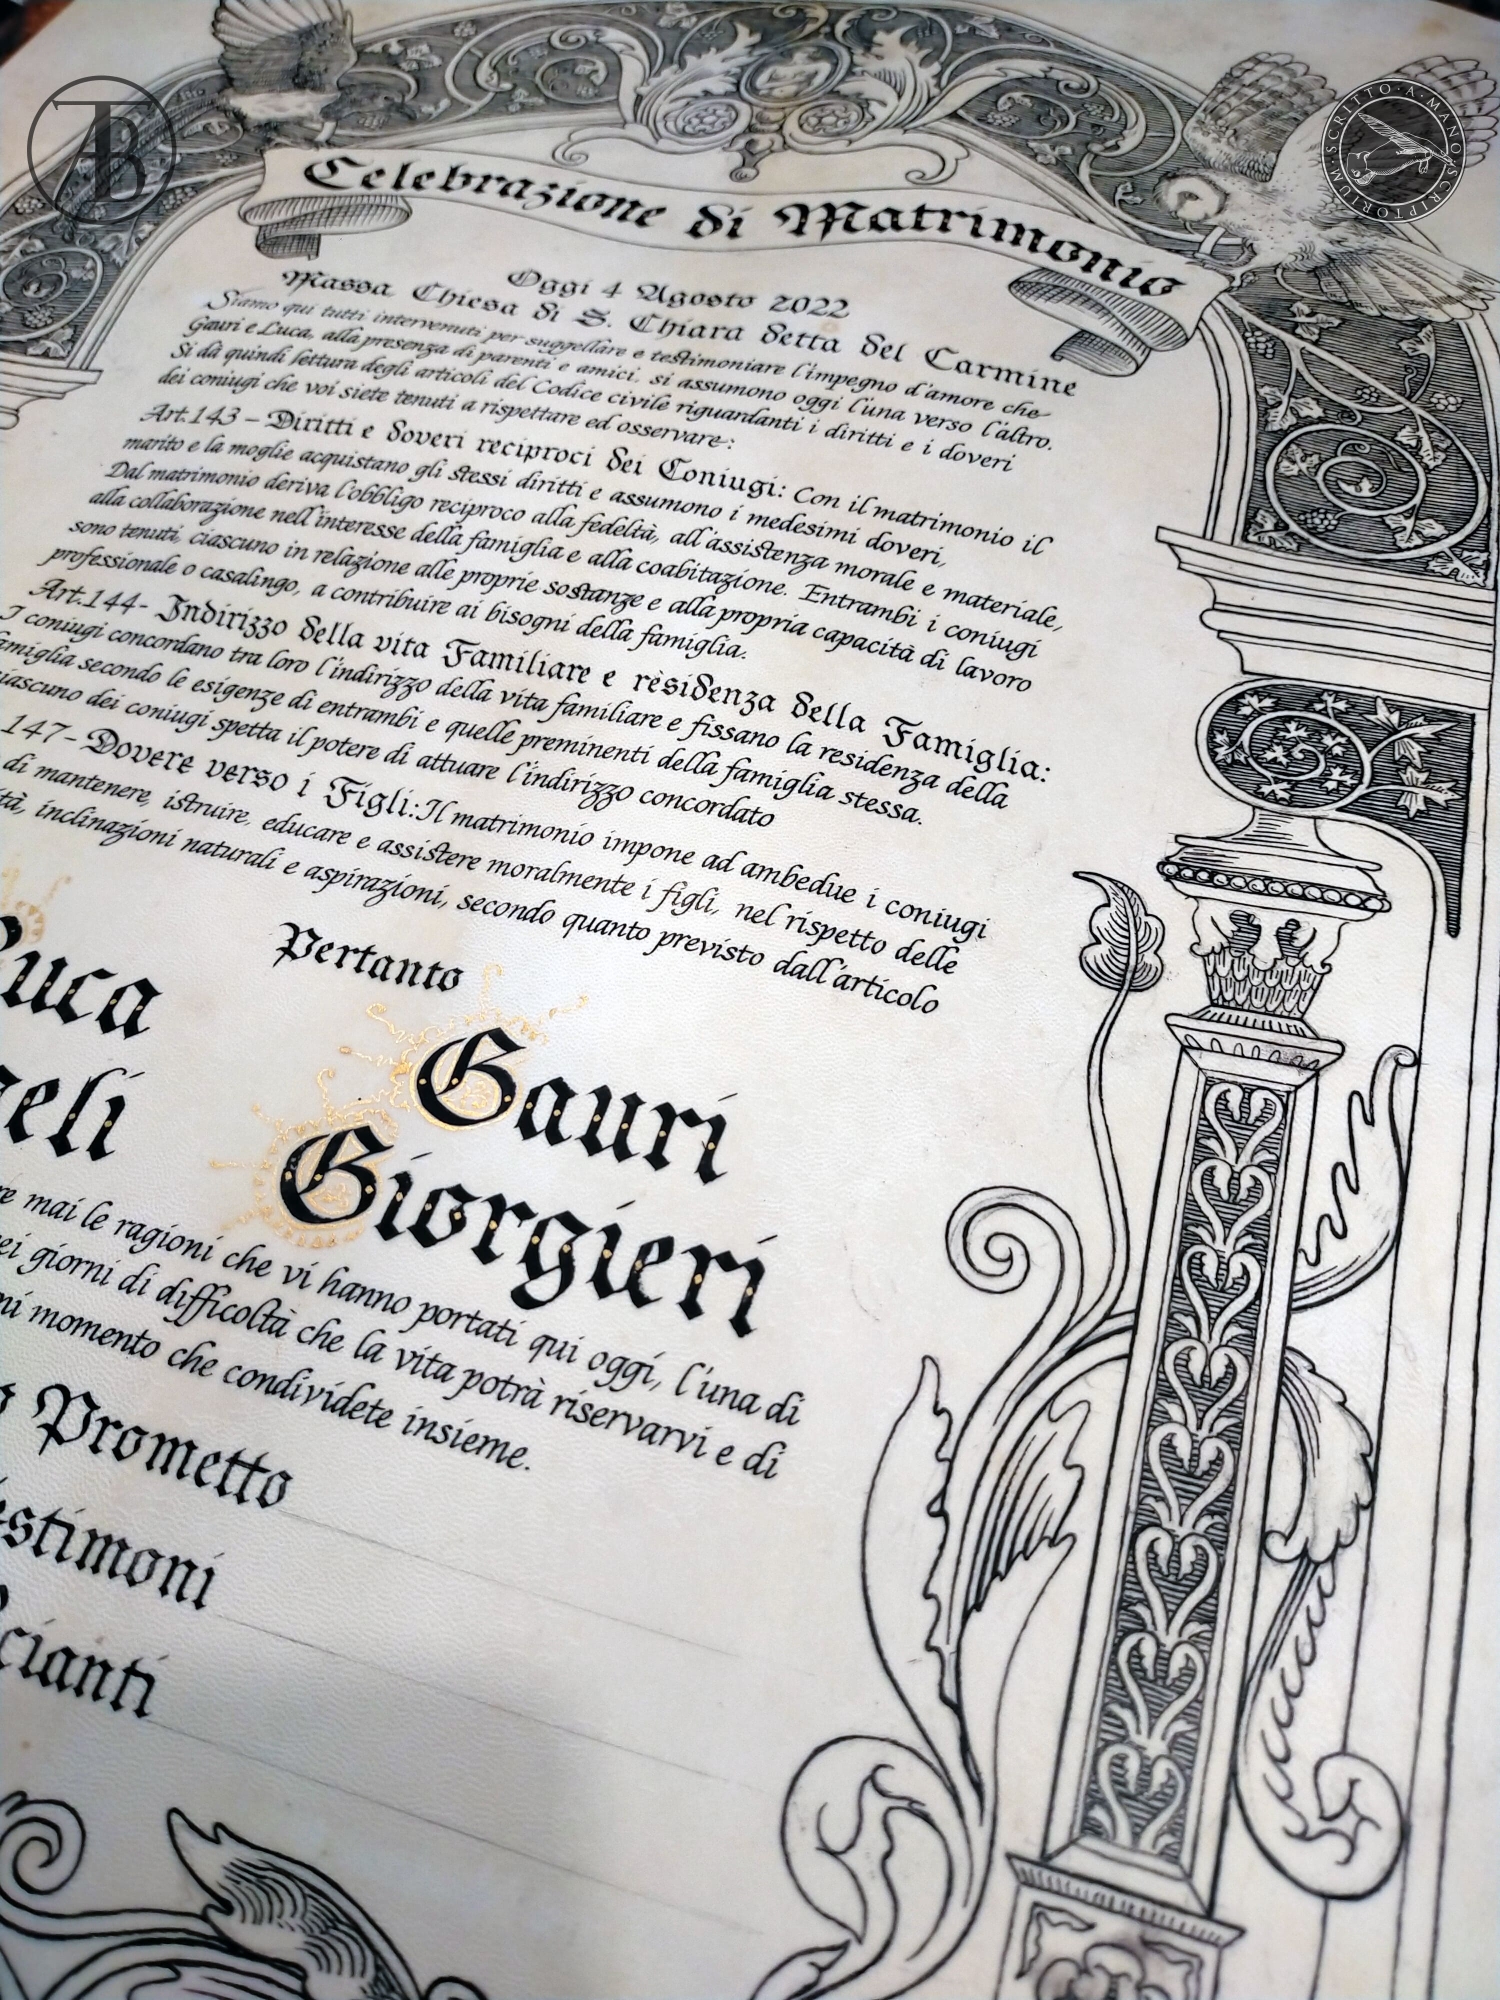 Celebrazione di Matrimonio
Oggi 4 Agosto 2022
Massa Chiesa di S. Chiara detta del Carmine
Siamo qui tutti intervenuti per suggellare e testimoniare l'impegno d'amore che
Gauri e Luca, alla presenza di parenti e amici, si assumono oggi l'una verso l'altro.
Si dà quindi lettura degli articoli del Codice civile riguardanti i diritti e i doveri
dei coniugi che voi siete tenuti a rispettare ed osservare:
Art.143 – Diritti e doveri reciproci dei Coniugi: Con il matrimonio il
marito e la moglie acquistano gli stessi diritti e assumono i medesimi doveri,
Dal matrimonio deriva l'obbligo reciproco alla fedeltà, all'assistenza morale e materiale,
alla collaborazione nell'interesse della famiglia e alla coabitazione. Entrambi i coniugi
sono tenuti, ciascuno in relazione alle proprie sostanze e alla propria capacità di lavoro
professionale o casalingo, a contribuire ai bisogni della famiglia.
Art.144- Indirizzo della vita Familiare e rèsidenza della Famiglia:
I coniugi concordano tra loro l'indirizzo della vita familiare e fissano la residenza della
famiglia secondo le esigenze di entrambi e quelle preminenti della famiglia stessa.
iascuno dei coniugi spetta il potere di attuare l'indirizzo concordato
147- Dovere verso i Figli: Il matrimonio impone ad ambedue i coniugi
di mantenere, istruire, educare e assistere moralmente i figli, nel rispetto delle
tà, inclinazioni naturali e aspirazioni, secondo quanto previsto dall'articolo
Pertanto
Luca Gauri
geli Giorgieri
re mai le ragioni che vi hanno portati qui oggi, l'una di
ei giorni di difficoltà che la vita potrà riservarvi e di
ni momento che condividete insieme.
Prometto
estimoni
cianti
SCRITTO·A·MANO SCRIPTORIUM